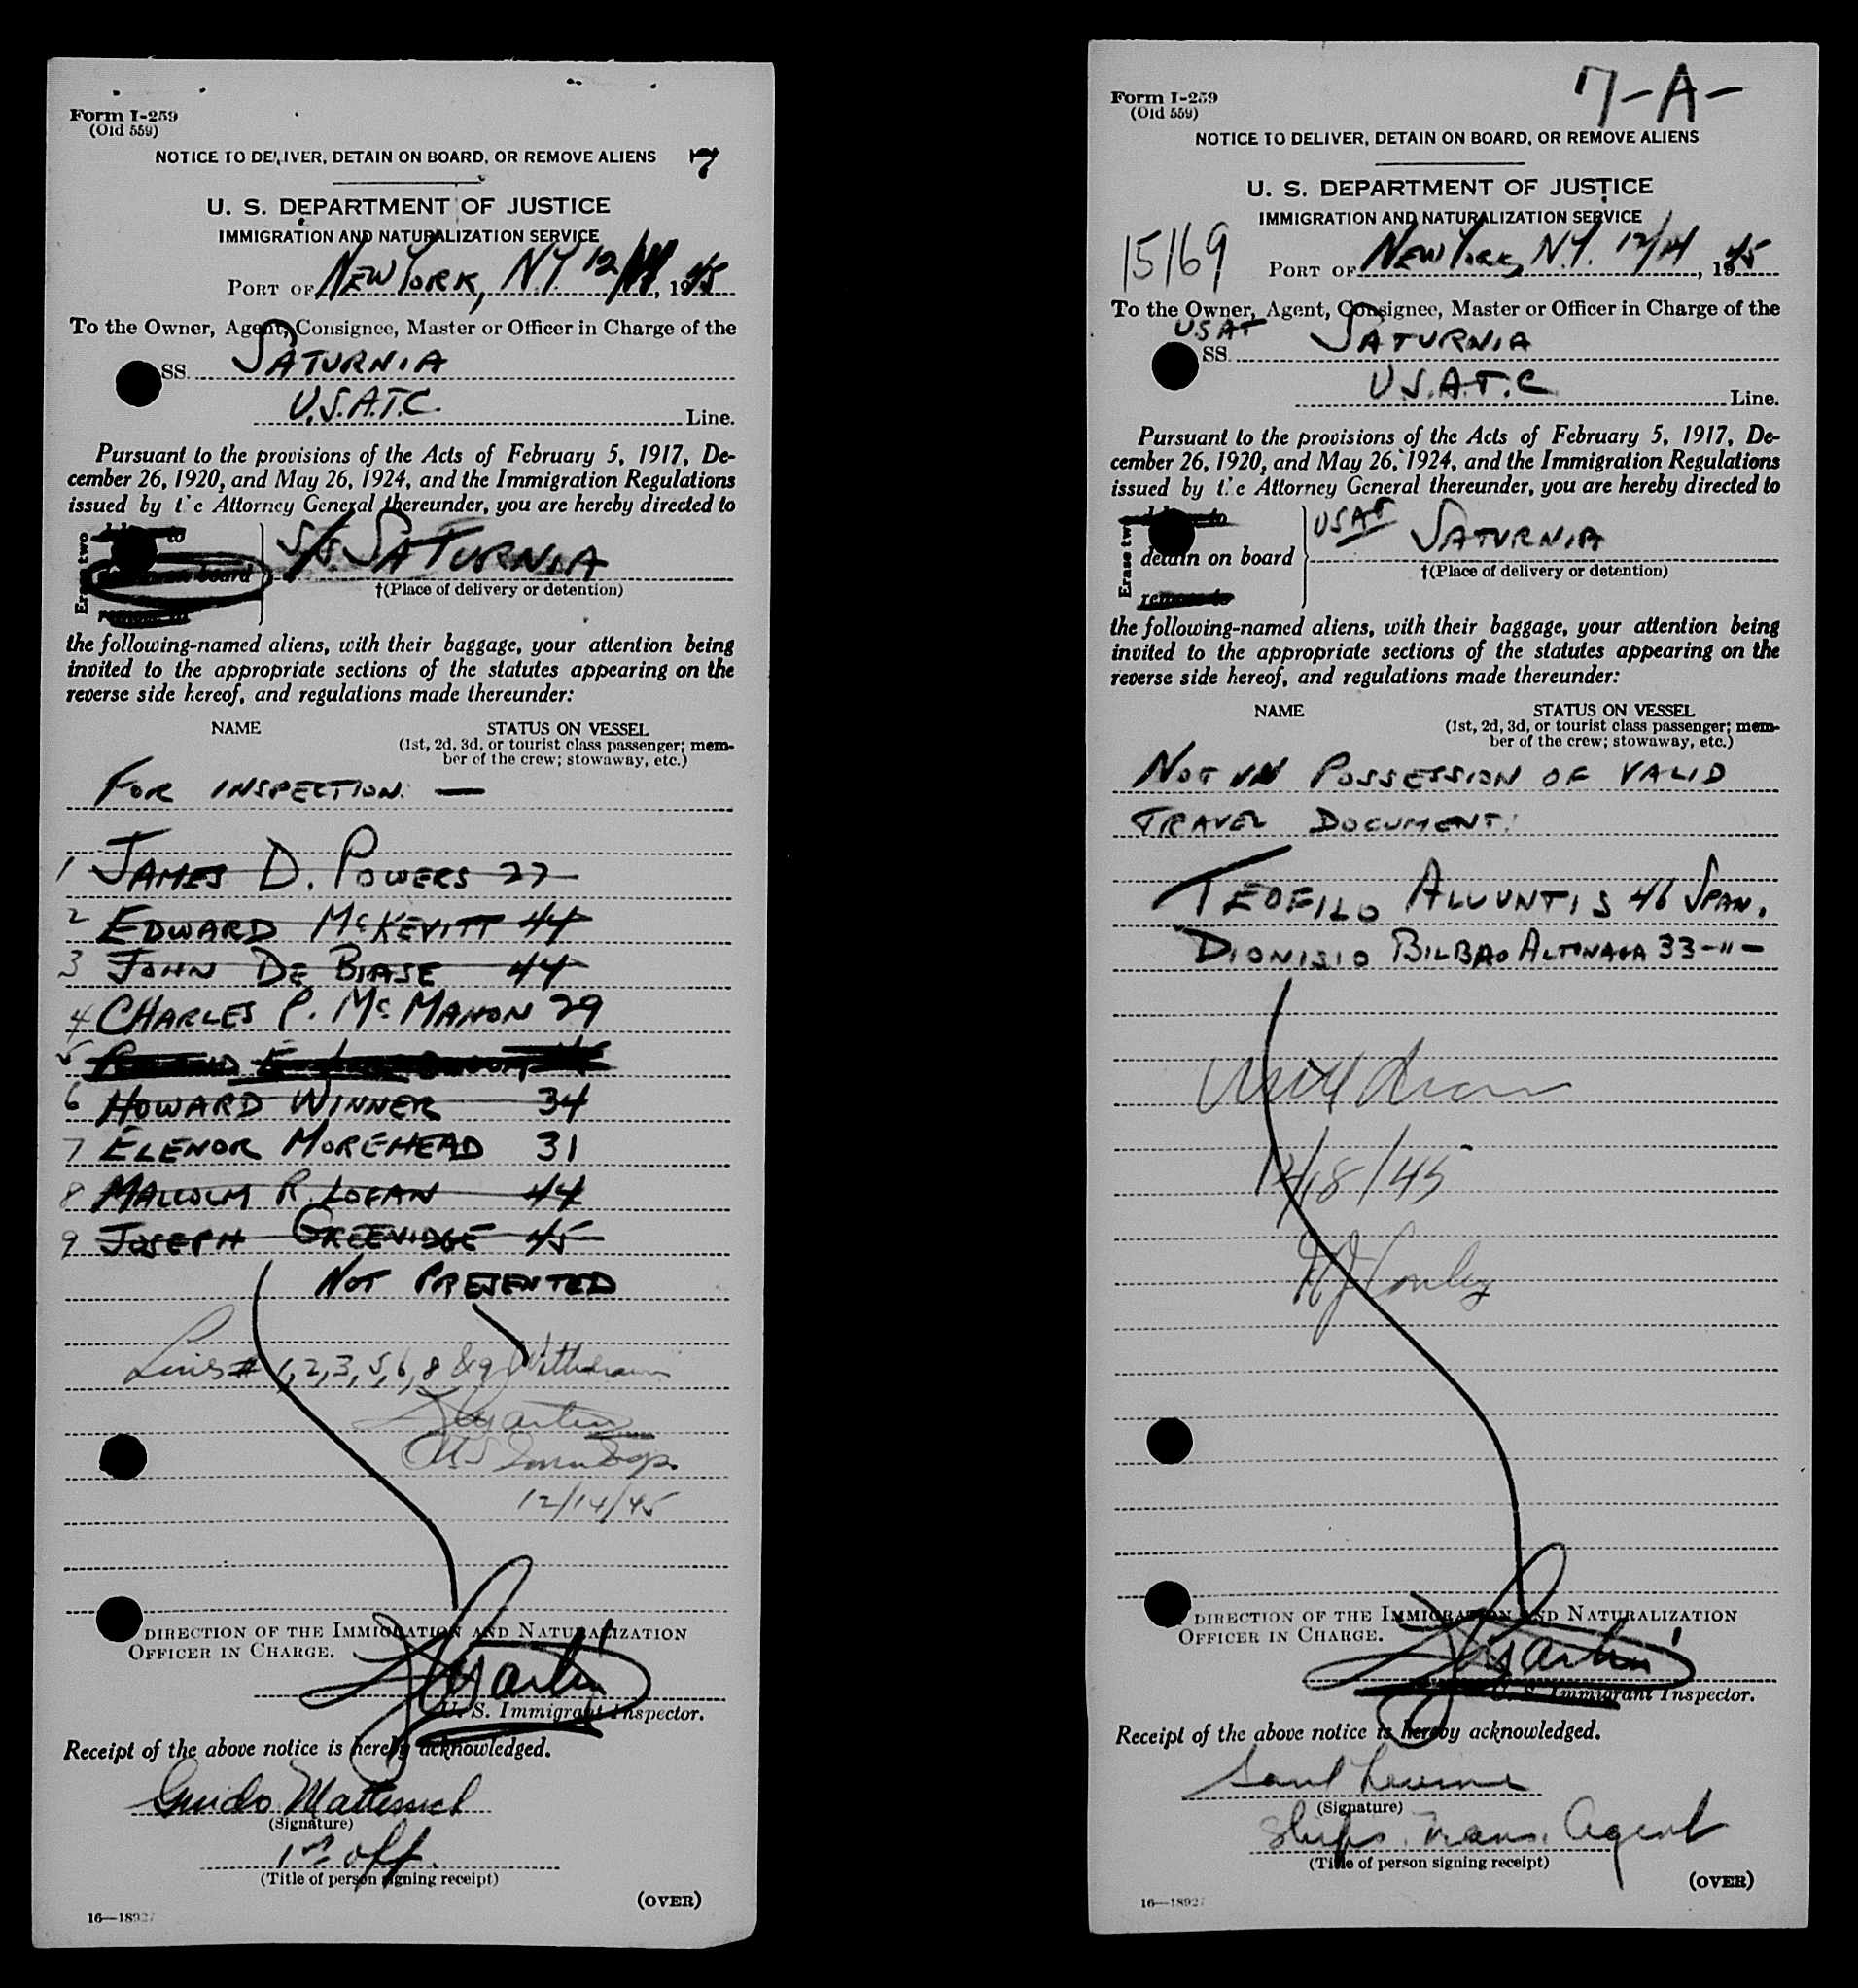 Form I-259
(Old 559)
NOTICE TO DELIVER, DETAIN ON BOARD, OR REMOVE ALIENS 7
U. S. DEPARTMENT OF JUSTICE
IMMIGRATION AND NATURALIZATION SERVICE
PORT OF NEW YORK, N.Y. 12/ , 1945
To the Owner, Agent, Consignee, Master or Officer in Charge of the
SS. SATURNIA
U.S.A.T.C. Line.
Pursuant to the provisions of the Acts of February 5, 1917, De-
cember 26, 1920, and May 26, 1924, and the Immigration Regulations
issued by the Attorney General thereunder, you are hereby directed to
Erase two
to
on board
S/S. SATURNIA
†(Place of delivery or detention)
the following-named aliens, with their baggage, your attention being
invited to the appropriate sections of the statutes appearing on the
reverse side hereof, and regulations made thereunder:
NAME STATUS ON VESSEL
(1st, 2d, 3d, or tourist class passenger; mem-
ber of the crew; stowaway, etc.)
FOR INSPECTION: —
1 JAMES D. POWERS 27
2 EDWARD McKEVITT 44
3 JOHN DE BIASE 44
4 CHARLES P. McMAHON 29
5
6 HOWARD WINNER 34
7 ELENOR MOREHEAD 31
8 MALCOLM R. LOGAN 44
9 JOSEPH GREENIDGE 45
NOT PRESENTED
Lines # 1, 2, 3, 5, 6, 8 & 9 Withdrawn
Martin
US Imm Insp.
12/14/45
DIRECTION OF THE IMMIGRATION AND NATURALIZATION
OFFICER IN CHARGE.
Martin
U. S. Immigrant Inspector.
Receipt of the above notice is hereby acknowledged.
Guido Mattessich
(Signature)
1st off.
(Title of person signing receipt)
(OVER)
16—18927
Form I-259
(Old 559)
7-A-
NOTICE TO DELIVER, DETAIN ON BOARD, OR REMOVE ALIENS
U. S. DEPARTMENT OF JUSTICE
IMMIGRATION AND NATURALIZATION SERVICE
15169
PORT OF NEW YORK, N.Y. 12/14, 1945
To the Owner, Agent, Consignee, Master or Officer in Charge of the
USAT
SS. SATURNIA
U.S.A.T.C Line.
Pursuant to the provisions of the Acts of February 5, 1917, De-
cember 26, 1920, and May 26, 1924, and the Immigration Regulations
issued by the Attorney General thereunder, you are hereby directed to
Erase two
to
detain on board
remove to
USAT SATURNIA
†(Place of delivery or detention)
the following-named aliens, with their baggage, your attention being
invited to the appropriate sections of the statutes appearing on the
reverse side hereof, and regulations made thereunder:
NAME STATUS ON VESSEL
(1st, 2d, 3d, or tourist class passenger; mem-
ber of the crew; stowaway, etc.)
NOT IN POSSESSION OF VALID
TRAVEL DOCUMENT:
TEOFILO ALUUNTIS 46 SPAN.
DIONISIO BILBAO ALTONAGA 33 -"-
Withdrawn
12/18/45
Conley
DIRECTION OF THE IMMIGRATION AND NATURALIZATION
OFFICER IN CHARGE.
Martin
U. S. Immigrant Inspector.
Receipt of the above notice is hereby acknowledged.
Saul Levine
(Signature)
Ships. Trans. Agent
(Title of person signing receipt)
(OVER)
16—18927